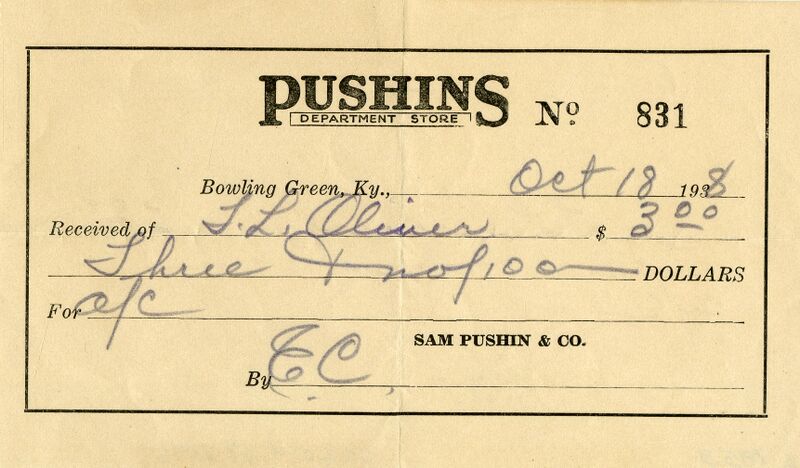 PUSHINS
DEPARTMENT STORE
Nº 831
Bowling Green, Ky., Oct 18 1938
Received of T. L. Oliver $ 3 00
Three & no/100 DOLLARS
For a/c
SAM PUSHIN & CO.
By E. C.